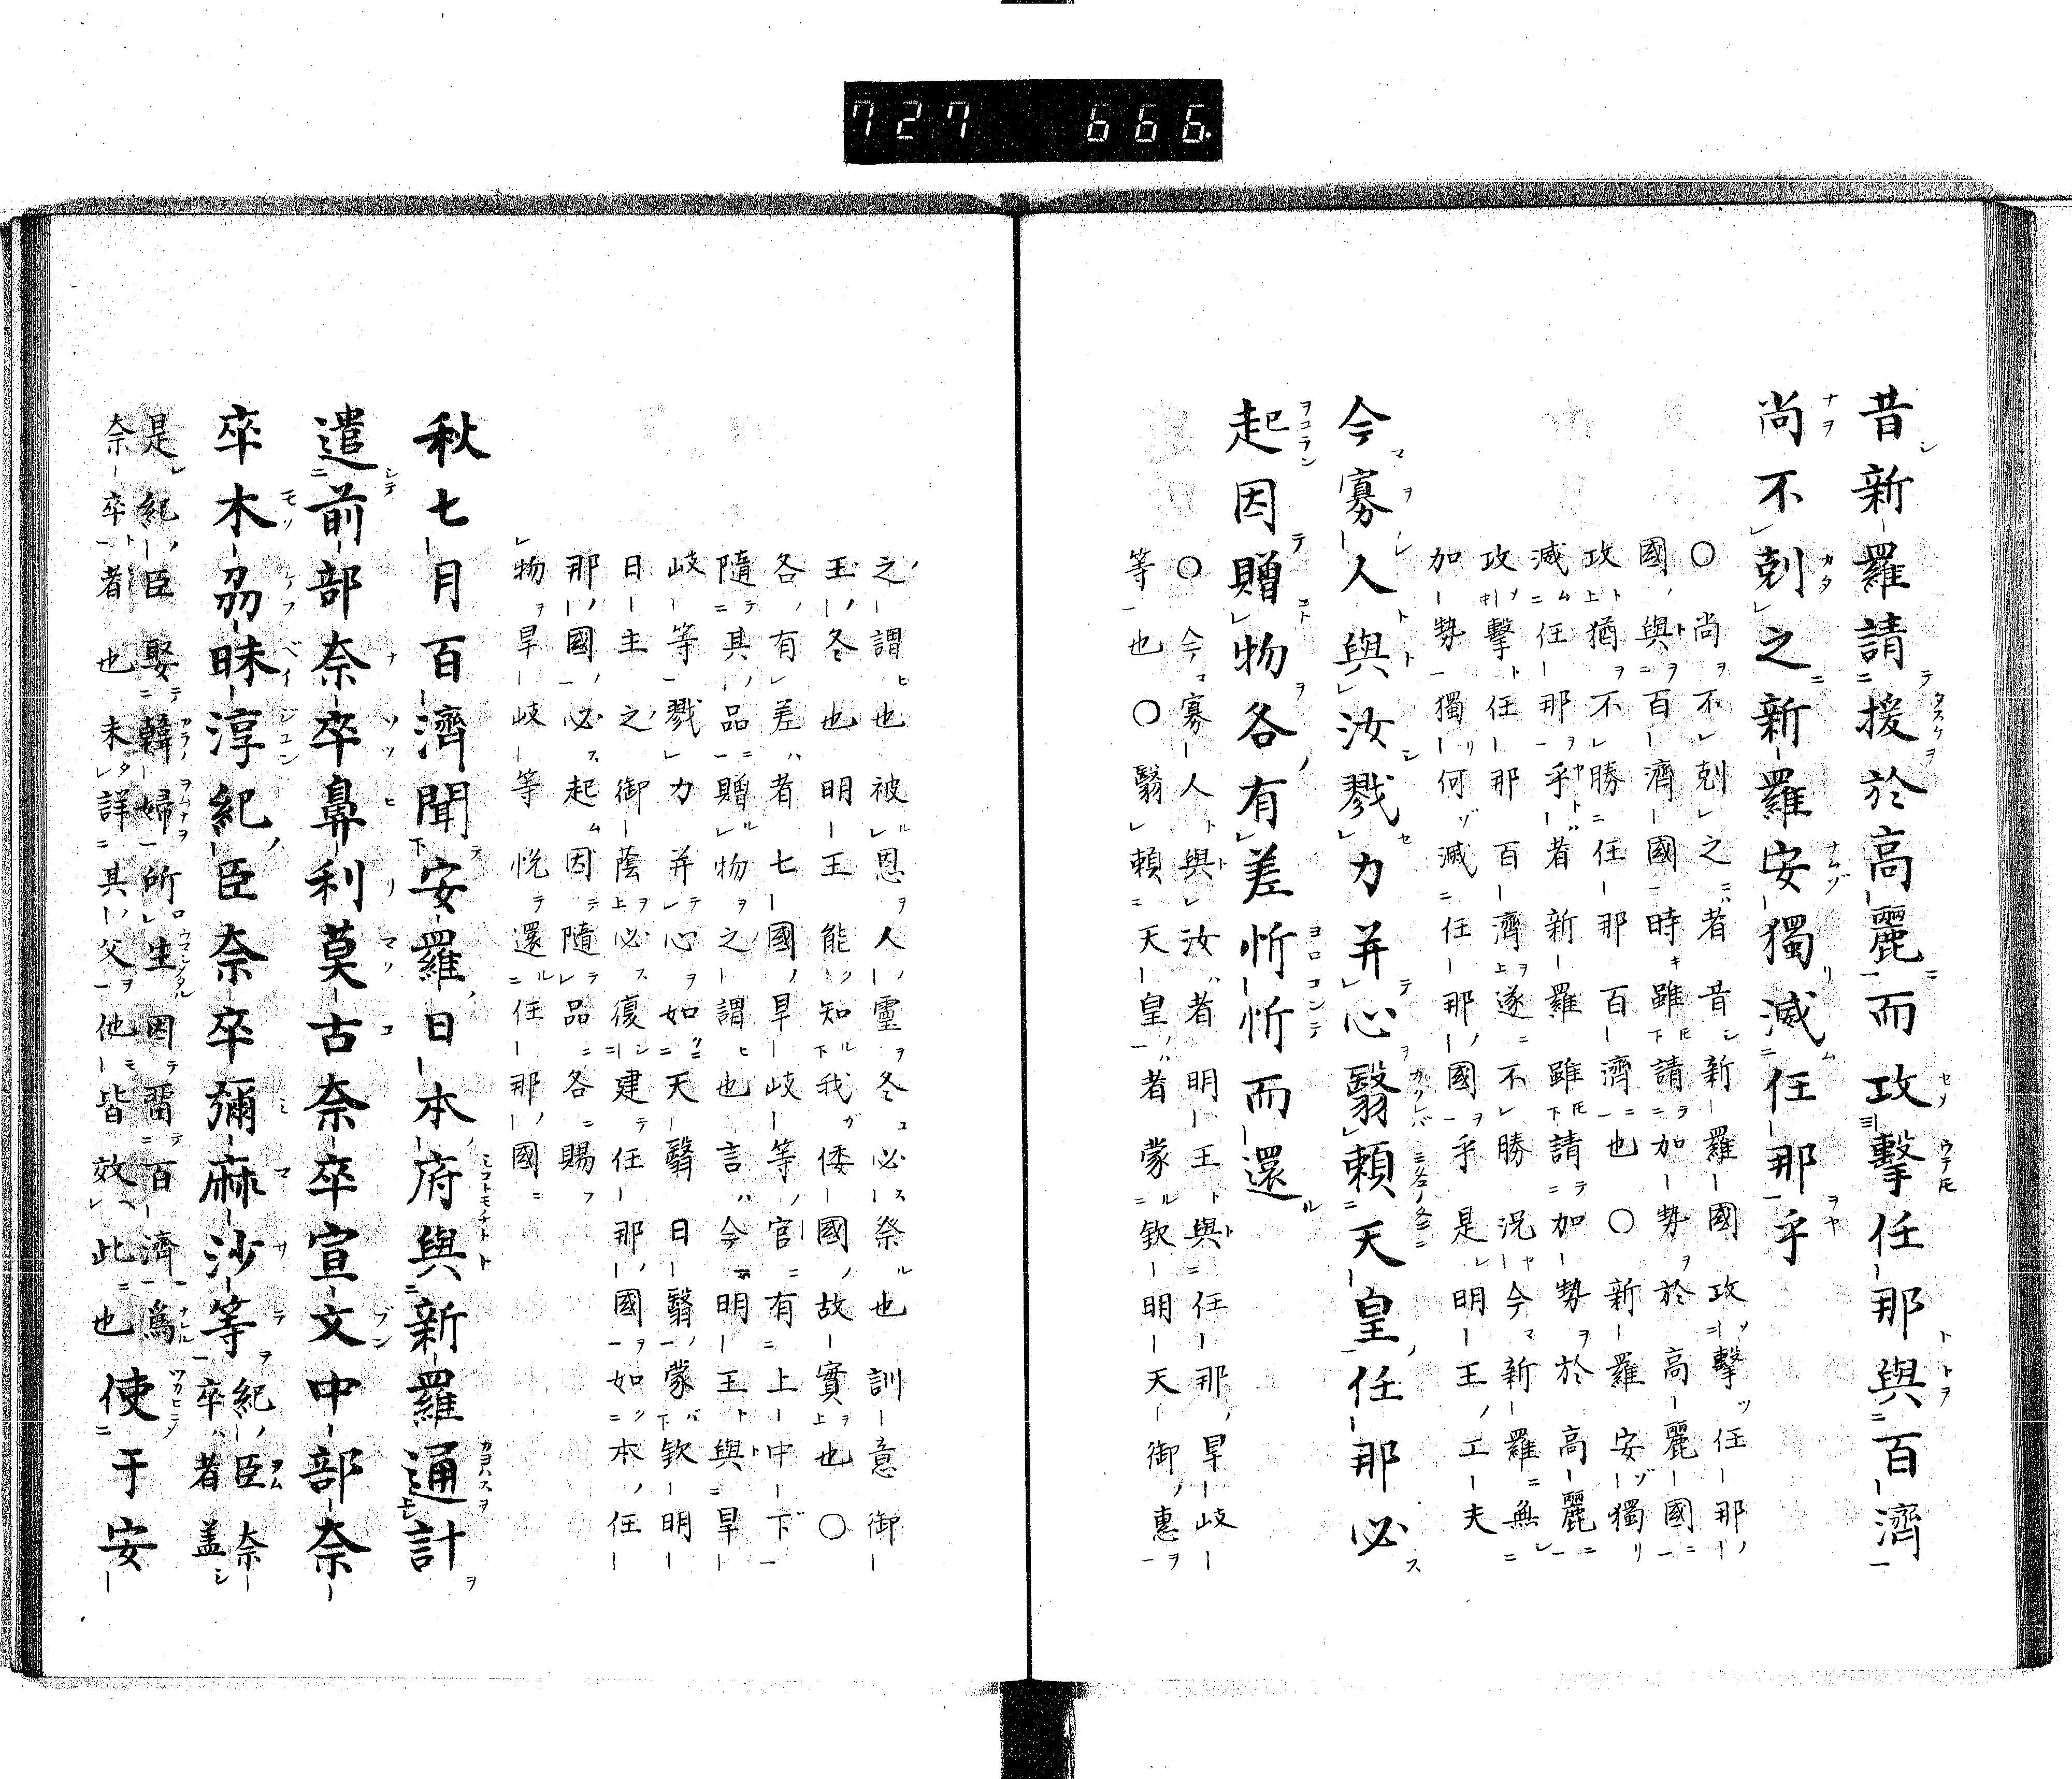 727 666.
昔新羅請援於高麗而攻擊任那與百濟
尚不剋之新羅安獨滅任那乎
〇尚不剋之者昔新羅國攻擊任那
國與百濟國時雖請加勢於高麗國
攻猶不勝任那百濟也〇新羅安獨
滅任那乎者新羅雖請加勢於高麗
攻擊任那百濟遂不勝況今新羅無
加勢獨何滅任那國乎是明王工夫
今寡人與汝戮力并心翳賴天皇任那必
起因贈物各有差忻忻而還
〇今寡人與汝者明王與任那旱岐
等也〇翳賴天皇者蒙欽明天御惠
之謂也被恩人靈冬必祭也訓意御
玉冬也明王能知我倭國故實也〇
各有差者七國旱岐等官有上中下
隨其品贈物之謂也言今明王與旱
岐等戮力并心如天翳日翳蒙欽明
日主之御蔭必復建任那國如本任
那國必起因隨品各賜
物旱岐等悦還任那國
秋七月百濟聞安羅日本府與新羅通計
遣前部奈卒鼻利莫古奈卒宣文中部奈
卒木刕眛淳紀臣奈卒彌麻沙等紀臣奈
卒者盖
是紀臣娶韓婦所生因留百濟爲
奈卒者也未詳其父他皆效此也使于安